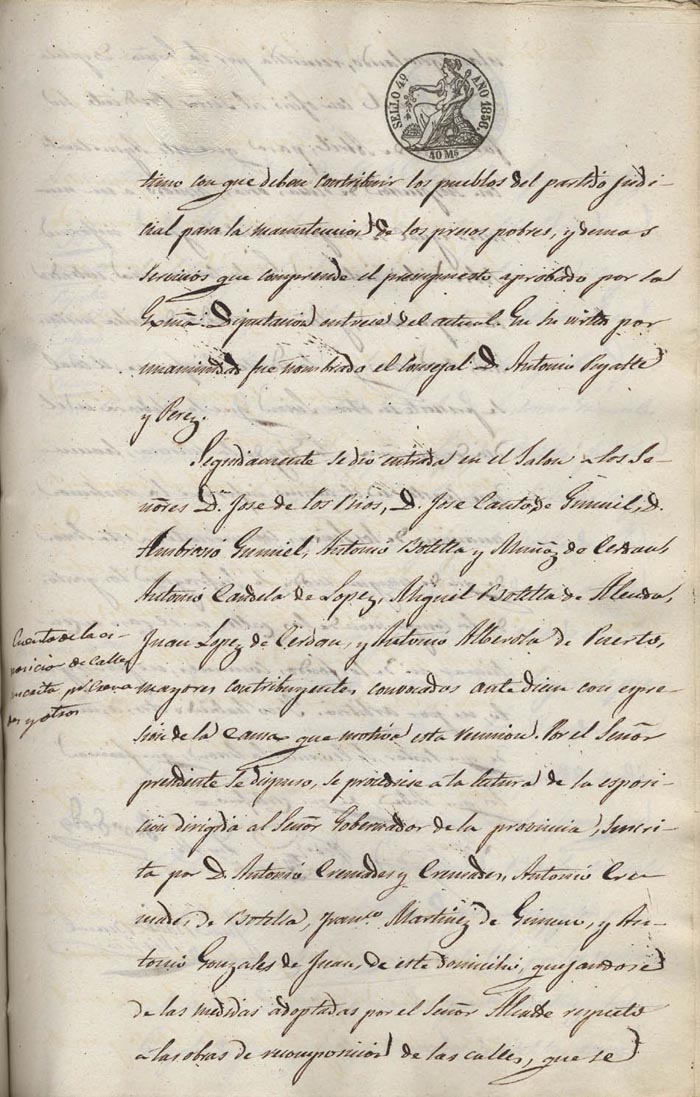 SELLO 4º AÑO 1856.
40 Ms
timo con que deban contribuir los pueblos del partido judi-
cial para la manutencion de los presos pobres, y demas
servicios que comprende el presupuesto aprobado por la
Exma. Diputacion en trece del actual. En su vista por
unanimidad fue nombrado el Consejal D. Antonio
y Perez.
Seguidamente se dio entrada en el Salon a los Se-
ñores Dn. Jose de los Rios, D. Jose Canto de Gumiel, D.
Ambrosio Gumiel, Antonio Botella y Muñoz de Cerdan,
Antonio Candela de Lopez, Miguel Botella de
Juan Lopez de Cerdan, y Antonio Alberola de Puerto,
mayores contribuyentes convocados ante diem con espre-
sion de la causa que motiva esta reunion. Por el Señor
presidente se dispuso, se procediese a la lectura de la esposi-
cion dirigida al Señor Gobernador de la provincia, suscri-
ta por D. Antonio Cremades y Cremades, Antonio Cre-
mades de Botella, Franco. Martinez de Gimeno, y An-
tonio Gonzales de Juan, de este domicilio, quejandose
de las medidas adoptadas por el Señor Alcalde respecto
a las obras de recomposicion de las calles, que se
Cuenta de la es-
posicion de Calles
suscrita pr. Crema
des y otros